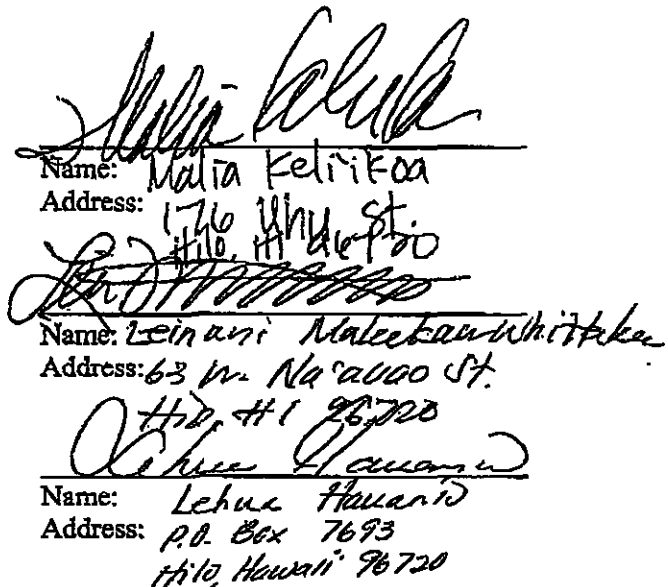 Name: Malia Keliikoa
Address: 176 Uhu St.
Hilo, HI 96720
Name: Leinani
Address: 63 W. Na'auao St.
Hilo HI 96720
Name: Lehua
Address: P.O. Box 7693
Hilo, Hawaii 96720